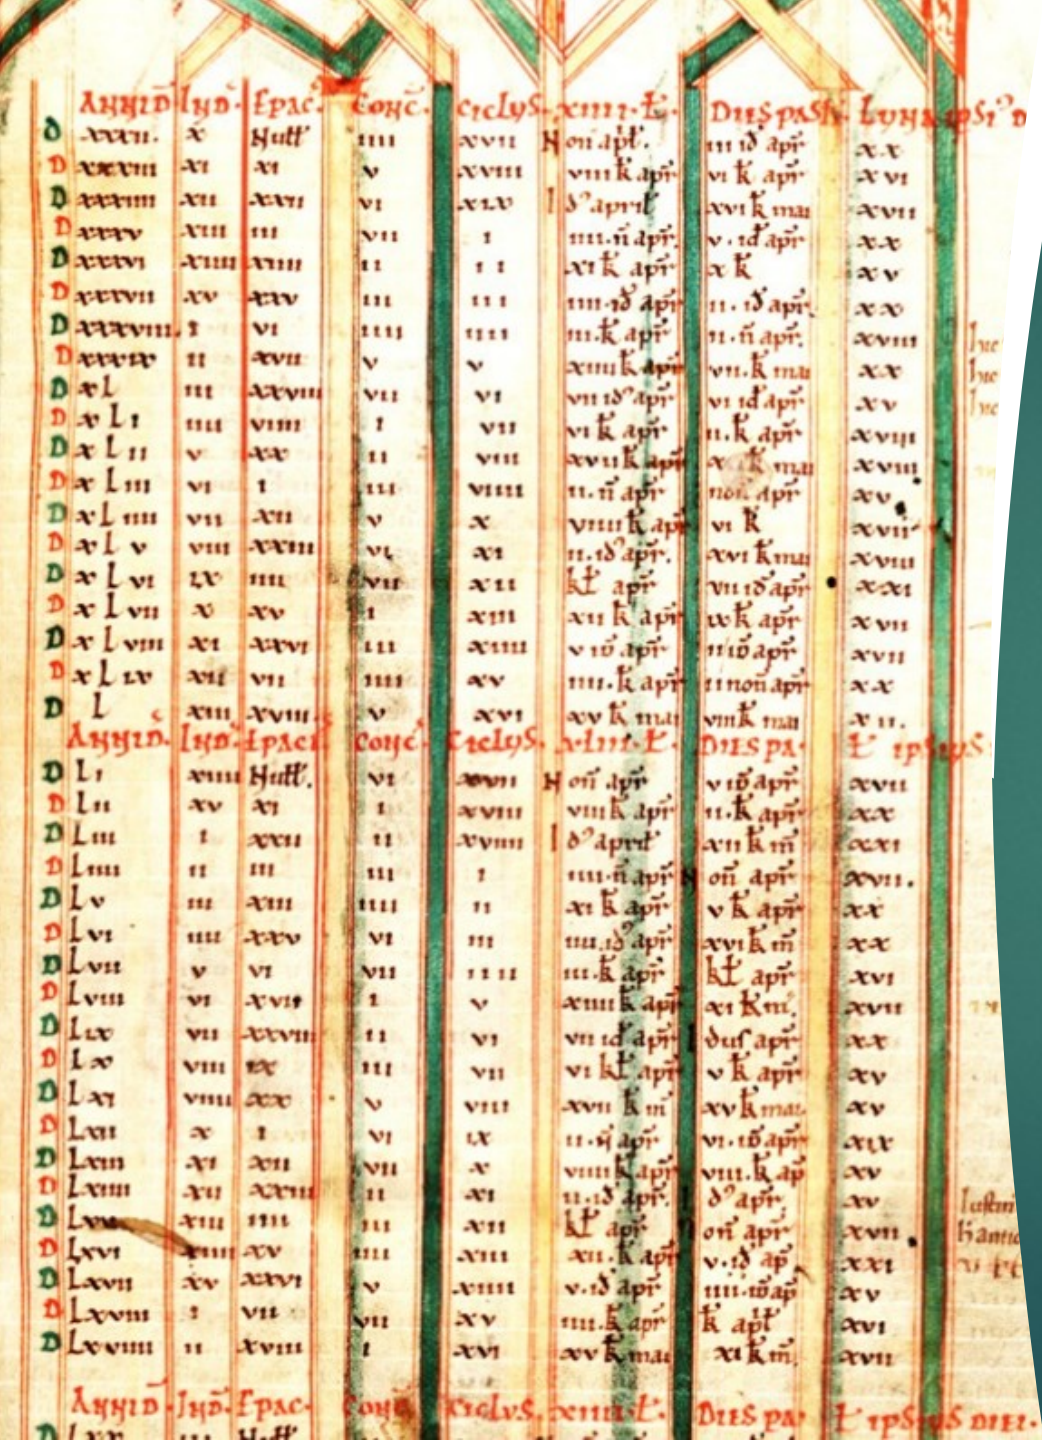 ANNI D̄ IND̄. EPAC̄. CONC̄. CICLUS. XIIII. Ł. DIES PASH LUNA IPSI᾽ D
D xxxii. x Null iiii xvii Non apł. iii id apr̄ xx
D xxxiii xi xi v xviii viii k apr̄ vi k apr̄ xvi
D xxxiiii xii xxii vi xix Id᾽ april xvi k mai xvii
D xxxv xiii iii vii i iiii. n̄ apr̄. v. id apr̄ xx
D xxxvi xiiii xiiii ii ii xi k apr̄ x k xv
D xxxvii xv xxv iii iii iiii. id apr̄ ii. id apr̄. xx
D xxxviii. i vi iiii iiii iii. k apr̄ ii. n̄ apr̄. xviii hic
D xxxix ii xvii v v xiiii k apr̄ vii. k mai xx hic
D xl iii xxviii vii vi vii id᾽ apr̄ vi id apr̄ xv hic
D xli iiii viiii i vii vi k apr̄ ii. k apr̄ xviii
D xlii v xx ii viii xvii k apr̄ k mai xviii
D xliii vi i iii viiii ii. n̄ apr̄ non apr̄ xv
D xliiii vii xii v x viiii k apr̄ vi k xvii
D xlv viii xxiii vi xi ii. id᾽ apr̄. xvi k mai xviii
D xlvi ix iiii vii xii kł apr̄ vii id apr̄ xxi
D xlvii x xv i xiii xii k apr̄ ix k apr̄ xvii
D xlviii xi xxvi iii xiiii v id apr̄ ii id apr̄ xvii
D xlix xii vii iiii xv iiii. k apr̄ ii non apr̄ xx
D l xiii xviii. v xvi xv k mai viii k mai xii.
ANNI D̄. IND̄. EPACT̄. CONC̄. CICLUS. XIIII. Ł. DIES PA. Ł IPSIUS.
D li xiiii Null. vi xvii Non̄ apr̄ v id apr̄ xvii
D lii xv xi i xviii viii k apr̄ ii. k apr̄ xx
D liii i xxii ii xviiii Id᾽ april xii k m̄ xxi
D liiii ii iii iii i iiii. n̄ apr̄ Non̄ apr̄ xvii.
D lv iii xiiii iiii ii xi k apr̄ v k apr̄ xx
D lvi iiii xxv vi iii iiii. id apr̄ xvi k m̄ xx
D lvii v vi vii iiii iii. k apr̄ kł apr̄ xvi
D lviii vi xvii i v xiiii k apr̄ xi k m̄. xvii
D lix vii xxviii ii vi vii id apr̄ Idus apr̄ xx
D lx viii ix iii vii vi kł apr̄ v k apr̄ xv
D lxi viiii xx v viii xvii k m̄ xv k mai. xv
D lxii x i vi ix ii. n̄ apr̄ vi. id apr̄ xix
D lxiii xi xii vii x viiii k apr̄ viii. k ap xv
D lxiiii xii xxiii ii xi ii. id apr̄. Id᾽ apr̄ xv
D lxv xiii iiii iii xii kł apr̄ Non̄ apr̄ xvii
D lxvi xiiii xv iiii xiii xii. k apr̄ v. id ap̄ xxi
D lxvii xv xxvi v xiiii v. id apr̄ iiii. id ap̄ xv
D lxviii i vii vii xv iiii. k apr̄ k apł xvi
D lxviiii ii xviii i xvi xv k mai xi k m̄. xvii
ANNI D̄. IND̄. EPAC. CONC̄ CICLUS. XIIII. Ł. DIES PA Ł IPSIUS DIEI.
D lxx Null